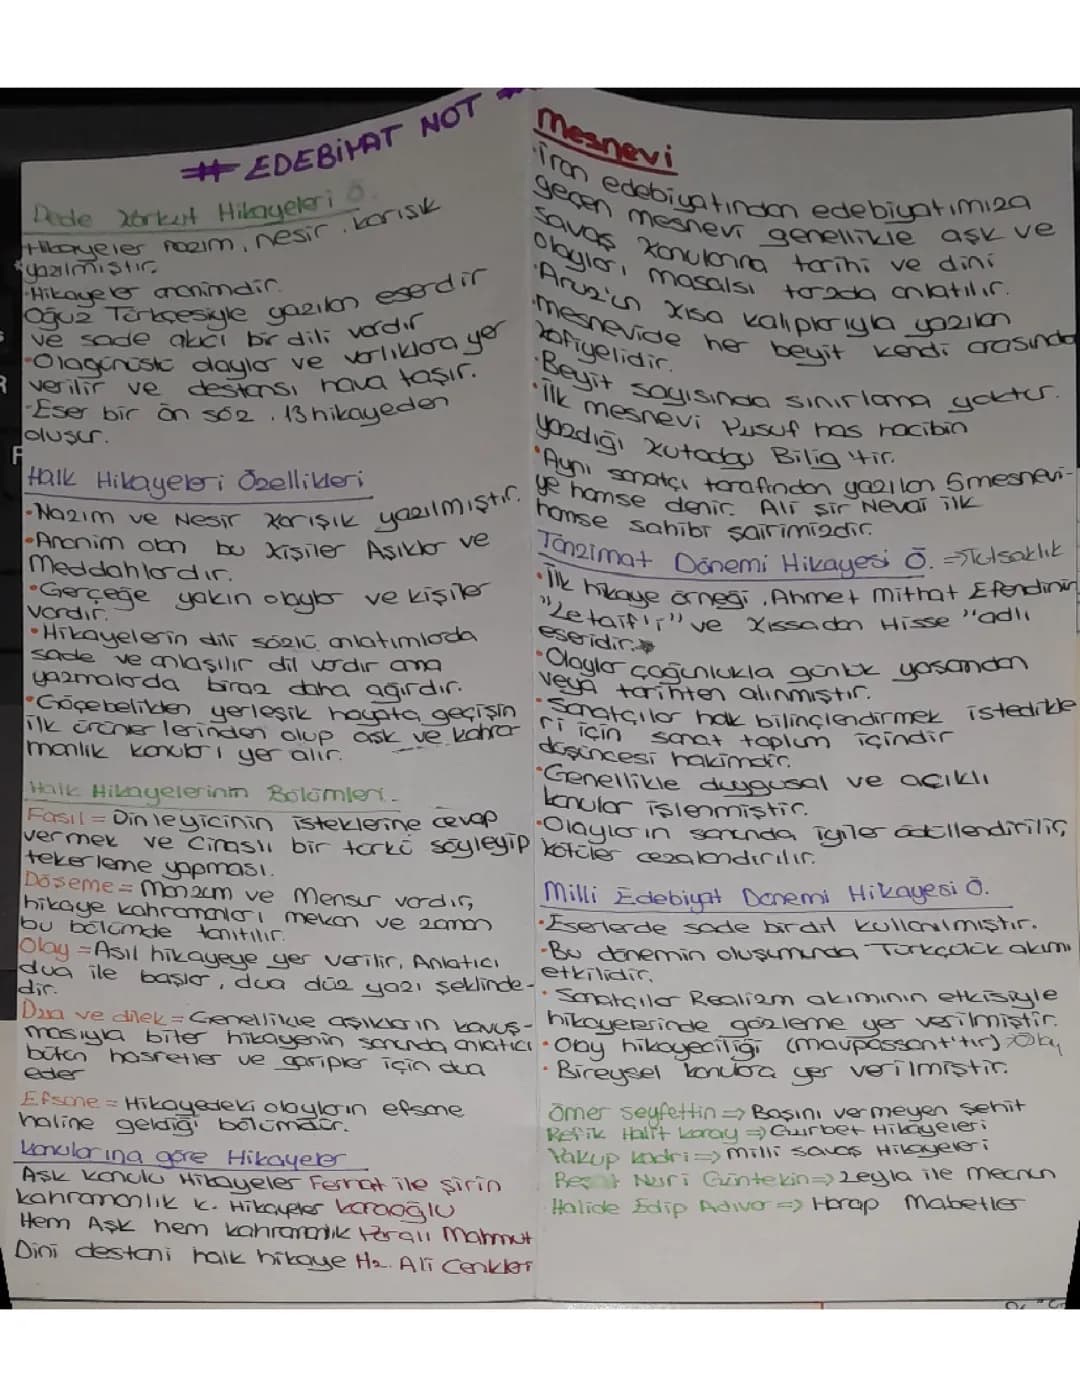 # EDEBİYAT NOT #
Dede Korkut Hikayeleri Ö.
Hikayeler nazım, nesir, karışık
yazılmıştır.
·Hikayeler anonimdir.
Oğuz Türkçesiyle yazılan eserdir
ve sade akıcı bir dili vardır
·Olağanüstü olaylar ve varlıklara yer
verilir ve destansı hava taşır.
-Eser bir ön söz, 13 hikayeden
oluşur.
Halk Hikayeleri Özellikleri
·Nazım ve Nesir Karışık yazılmıştır.
·Anonim olan bu kişiler Aşıklar ve
Meddahlardır.
·Gerçeğe yakın olaylar ve kişiler
vardır.
·Hikayelerin dili sözlü anlatımlarda
sade ve anlaşılır dil vardır ama
yazmalarda biraz daha ağırdır.
·Göçebelikten yerleşik hayata geçişin
ilk ürünlerinden olup aşk ve kahra-
manlık konuları yer alır.
Halk Hikayelerinin Bölümleri
Fasıl = Dinleyicinin isteklerine cevap
vermek ve Cinaslı bir türkü söyleyip
tekerleme yapması.
Döşeme = Manzum ve Mensur vardır,
hikaye kahramanları mekan ve zaman
bu bölümde tanıtılır.
Olay = Asıl hikayeye yer verilir, Anlatıcı
dua ile başlar, dua düz yazı şeklinde-
dir.
Dua ve dilek = Genellikle aşıkların kavuş-
masıyla biter hikayenin sonunda anlatıcı
bütün hasretler ve garipler için dua
eder
Efsane = Hikayedeki olayların efsane
haline geldiği bölümdür.
Konularına göre Hikayeler
Aşk konulu Hikayeler Ferhat ile Şirin
kahramanlık k. Hikayeler Köroğlu
Hem Aşk hem kahramanlık Yaralı Mahmut
Dini destani halk hikaye Hz. Ali Cenkleri
Mesnevi
·İran edebiyatından edebiyatımıza
geçen mesnevi genellikle aşk ve
savaş konularına tarihi ve dini
olayları, masalsı tarzda anlatılır.
·Aruz'un kısa kalıplarıyla yazılan
·mesnevide her beyit kendi arasında
kafiyelidir.
·Beyit sayısında sınırlama yoktur.
·İlk mesnevi Yusuf has hacibin
yazdığı Kutadgu Bilig'tir.
·Aynı sanatçı tarafından yazılan 5 mesnevi-
ye hamse denir. Ali Şir Nevai ilk
hamse sahibi şairimizdir.
Tanzimat Dönemi Hikayesi Ö. =>Tutsaklık
·İlk hikaye örneği, Ahmet Mithat Efendinin
"Letaif'i" ve Kıssadan Hisse "adlı
eseridir.
·Olaylar çoğunlukla günlük yaşamdan
veya tarihten alınmıştır.
·Sanatçılar halk bilinçlendirmek istedikle
ri için sanat toplum içindir
düşüncesi hakimdir.
·Genellikle duygusal ve acıklı
konular işlenmiştir.
·Olayların sonunda iyiler ödüllendirilir,
kötüler cezalandırılır.
Milli Edebiyat Dönemi Hikayesi Ö.
·Eserlerde sade bir dil kullanılmıştır.
·Bu dönemin oluşumunda Türkçülük akımı
etkilidir.
·Sanatçılar Realizm akımının etkisiyle
hikayelerinde gözleme yer verilmiştir.
·Olay hikayeciliği (maupassant'tır) Olay
·Bireysel konulara yer verilmiştir.
Ömer Seyfettin => Başını vermeyen Şehit
Refik Halit Karay => Gurbet Hikayeleri
Yakup kadri => Milli savaş Hikayeleri
Reşat Nuri Güntekin => Leyla ile mecnun
Halide Edip Adıvar => Harap Mabetler